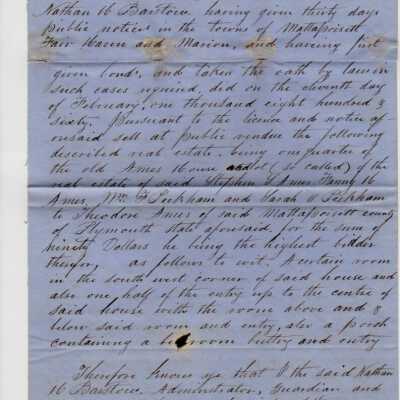 Nathan H Barstow. having given thirty days
public notice in the towns of Mattapoisett
Fair Haven and Marion, and having first
given bond, and taken the oath by law in
such cases required, did on the eleventh day
of February, one thousand eight hundred &
sixty. pursuant to the licence and notice af-
oresaid sell at public vendue the following
described real estate. being one quarter of
the old Ames House (so called) of the
real estate of said Stephen Ames Fanny H
Ames, Wm Peckham and Sarah Peckham
to Theodore Ames of said Mattapoisett county
of Plymouth State aforesaid, for the sum of
ninety Dollars he being the highest bidder
therefor, as follows to wit. A certain room
in the south west corner of said house and
also one half of the entry up to the centre of
said house with the room above and
below said room and entry, also a porch
containing a bedroom buttry and entry
Therefore know ye that I the said Nathan
H Barstow. Administrator, Guardian and